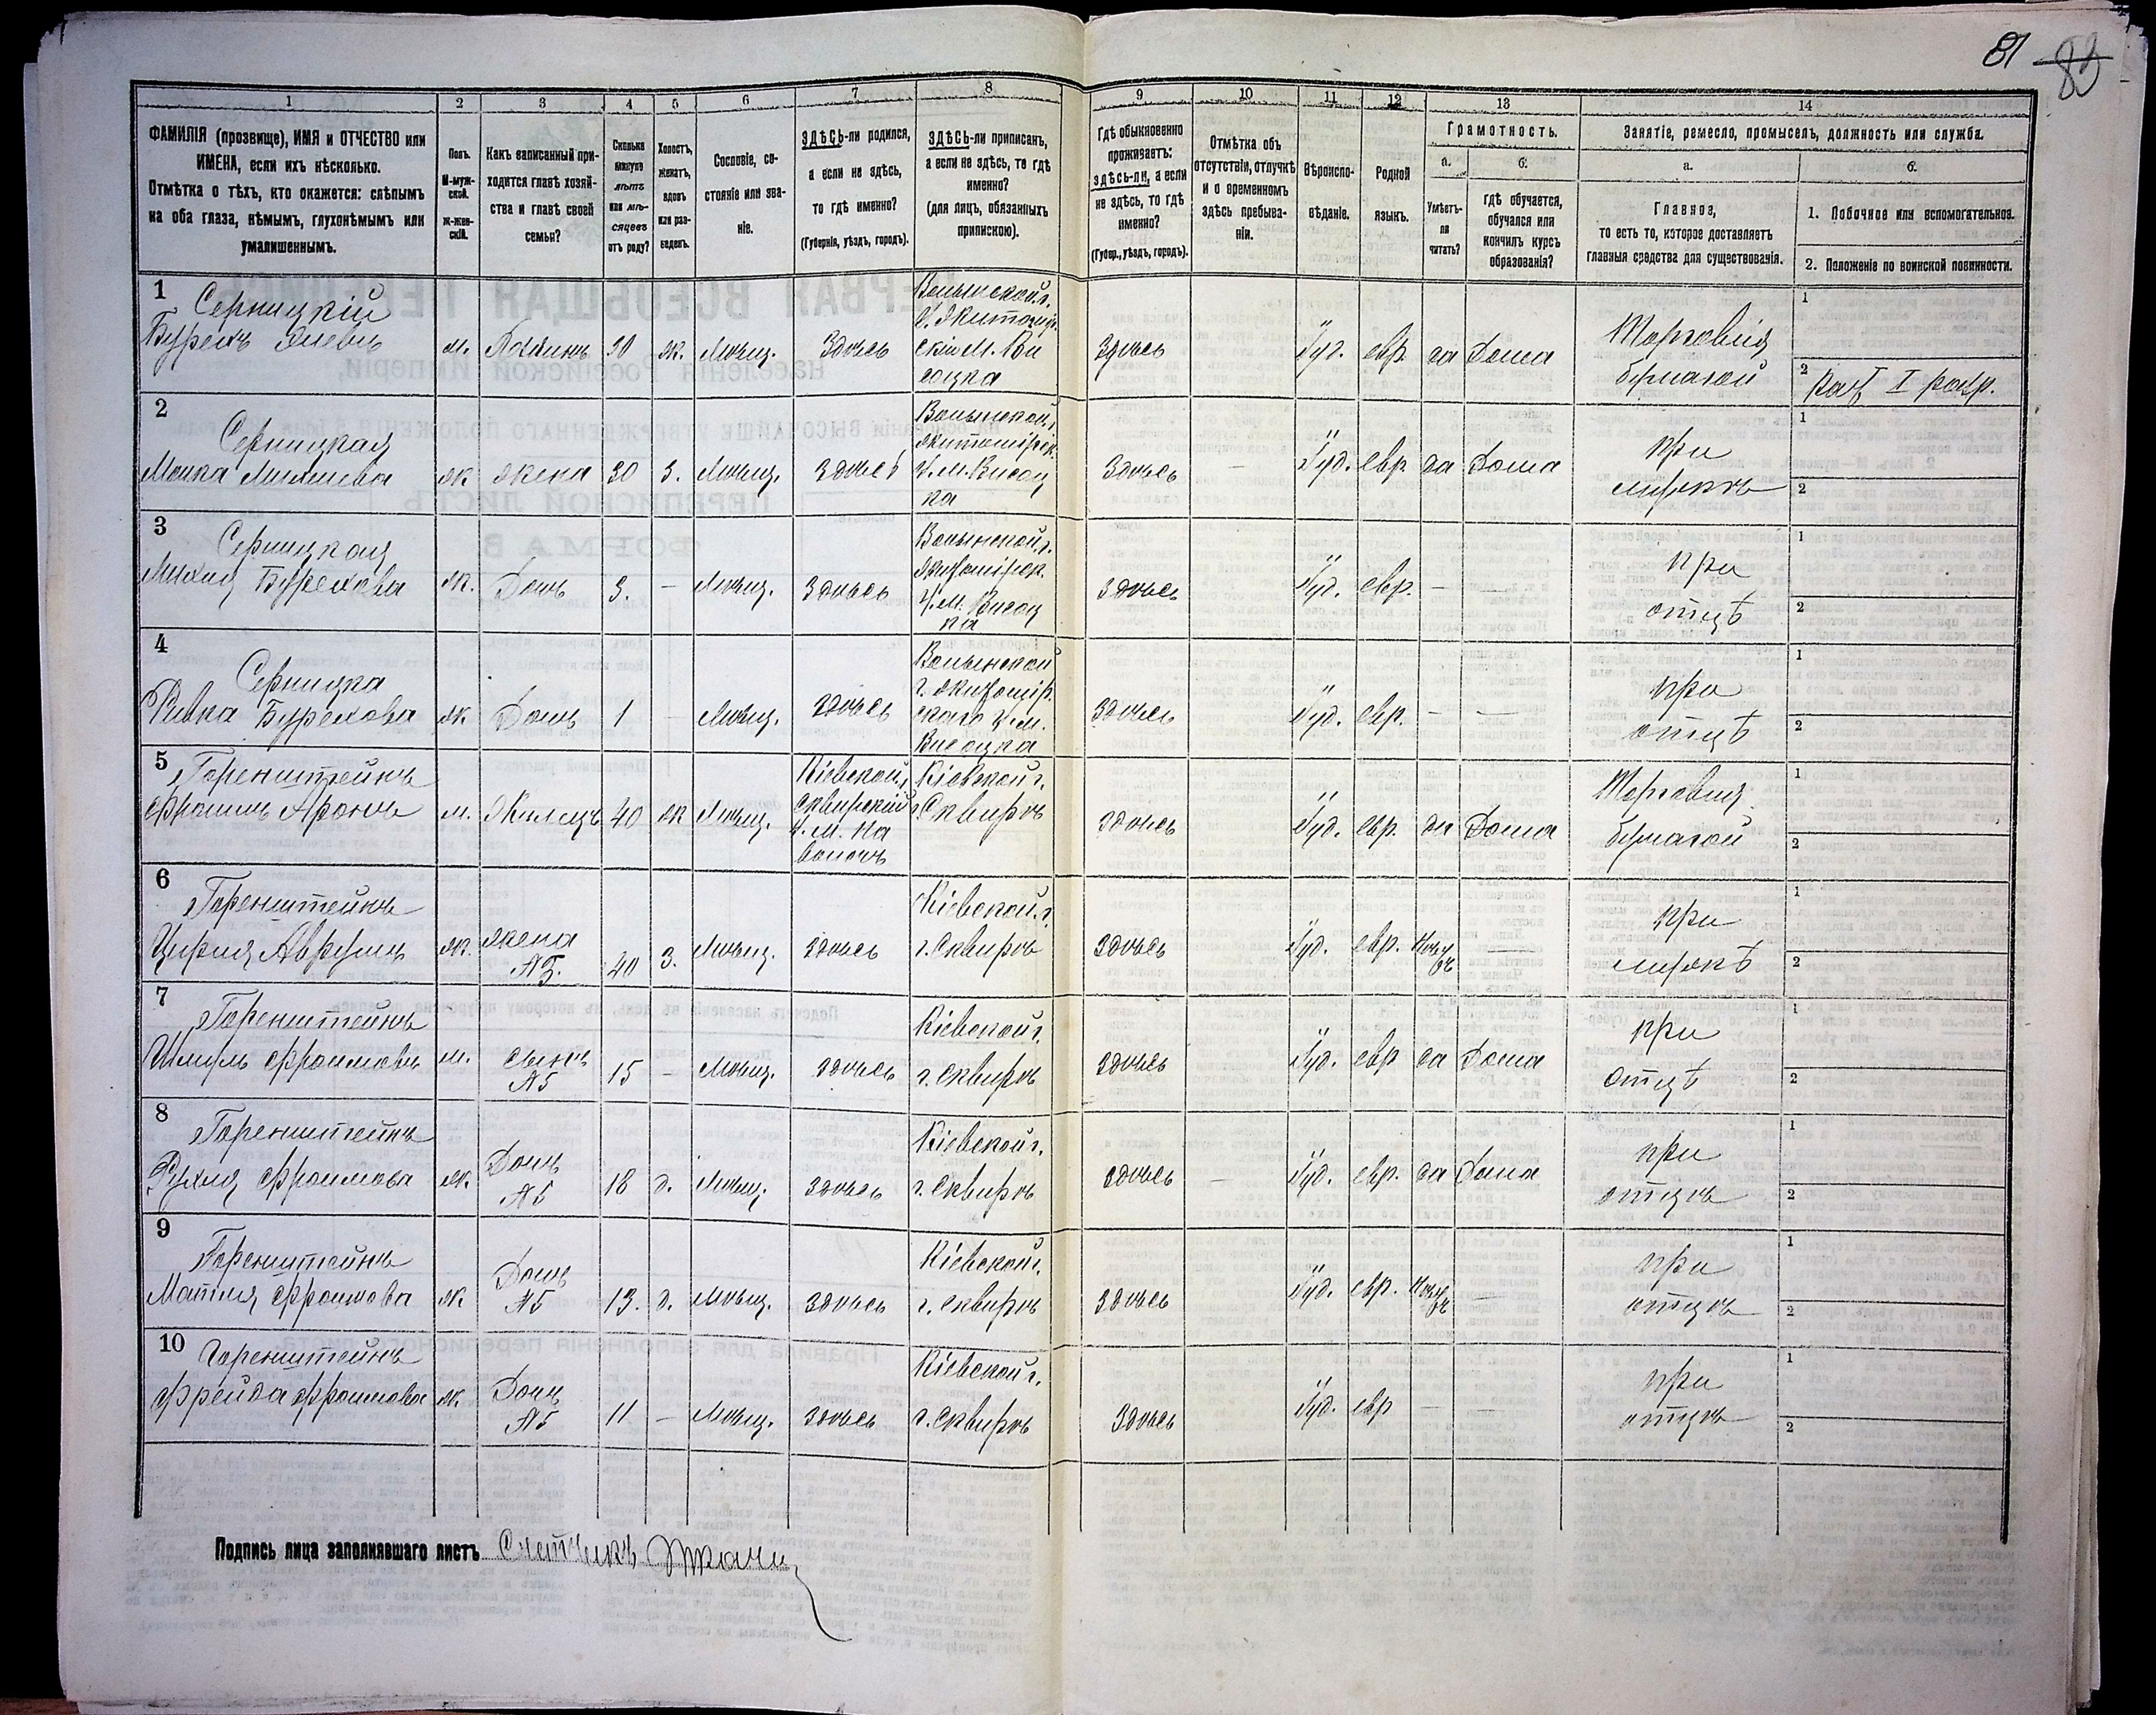 81 83
1 2 3 4 5 6 7 8 9 10 11 12 13 14
ФАМИЛІЯ (прозвище), ИМЯ и ОТЧЕСТВО или
ИМЕНА, если ихъ нѣсколько.
Отмѣтка о тѣхъ, кто окажется: слѣпымъ
на оба глаза, нѣмымъ, глухонѣмымъ или
умалишеннымъ.
Полъ.
М-муж-
ской.
Ж-жен-
скій.
Какъ записанный при-
ходится главѣ хозяй-
ства и главѣ своей
семьи?
Сколько
минуло
лѣтъ
или мѣ-
сяцевъ
отъ роду?
Холостъ,
женатъ,
вдовъ
или раз-
веденъ.
Сословіе, со-
стояніе или зва-
ніе.
ЗДѢСЬ-ли родился,
а если не здѣсь,
то гдѣ именно?
(Губернія, уѣздъ, городъ).
ЗДѢСЬ-ли приписанъ,
а если не здѣсь, то гдѣ
именно?
(для лицъ, обязанныхъ
припискою).
Гдѣ обыкновенно
проживаетъ:
здѣсь-ли, а если
не здѣсь, то гдѣ
именно?
(Губер., уѣздъ, городъ).
Отмѣтка объ
отсутствіи, отлучкѣ
и о временномъ
здѣсь пребыва-
ніи.
Вѣроиспо-
вѣданіе.
Родной
языкъ.
Грамотность.
а.
Умѣетъ-
ли
читать?
б.
гдѣ обучается,
обучался или
кончилъ курсъ
образованія?
Занятіе, ремесло, промыселъ, должность или служба.
а.
Главное,
то есть то, которое доставляетъ
главныя средства для существованія.
б.
1. Побочное или вспомогательное.
2. Положеніе по воинской повинности.
1 Серницкій
Бурехъ м. 30 ж. Мѣщ. Здѣсь
Волынской г.
Здѣсь Іуд. евр. да Дома
Торговля
бумагой
1
2 I разр.
2
Серницкая
жена 30 З. Мѣщ. Здѣсь
Волынской г.
Здѣсь — Іуд. евр. да Дома
при
мужѣ
1
2
3
Серницкая
Бурехова ж. Дочь 3. — Мѣщ. Здѣсь
Волынской г.
Здѣсь Іуд. евр. — —
при
отцѣ
1
2
4
Серницка
Ривка Бурехова ж Дочь 1 — Мѣщ. Здѣсь
Волынской
г. Житомір
скаго у. м.
Высоцка
Здѣсь Іуд. евр. — —
при
отцѣ
1
2
5 Горенштейнъ
Фроимъ м. Жилецъ 40 ж Мѣщ.
Кіевской г.
Сквирскій
у. м. Па
волочь
Кіевской г.
г. Сквиры
Здѣсь Іуд. евр. да Дома
Торговля
бумагой
1
2
6
Горенштейнъ
ж. жена
№5. 40 З. Мѣщ. Здѣсь
Кіевской г.
г. Сквиры
Здѣсь Іуд. евр. —
при
мужѣ
1
2
7
Горенштейнъ
Шмуль Фроимовъ м. сынъ
№5 15 — Мѣщ. Здѣсь
Кіевской г.
г. Сквиры
Здѣсь Іуд. евр да Дома
при
отцѣ
1
2
8
Горенштейнъ
Рухля Фроимова ж. Дочь
№5 18 д. Мѣщ. Здѣсь
Кіевской г.
г. Сквиры
Здѣсь — Іуд. евр. да Дома
при
отцѣ
1
2
9
Горенштейнъ
Фроимова ж. Дочь
№5 13. д. Мѣщ. Здѣсь
Кіевской г.
г. Сквиры
Здѣсь Іуд. евр. —
при
отцѣ
1
2
10 Горенштейнъ
Фрейда Фроимова ж. Дочь
№5 11 — Мѣщ. Здѣсь
Кіевской г.
г. Сквиры
Здѣсь Іуд. евр — —
при
отцѣ
1
2
Подпись лица заполнявшаго листъ Счетчикъ